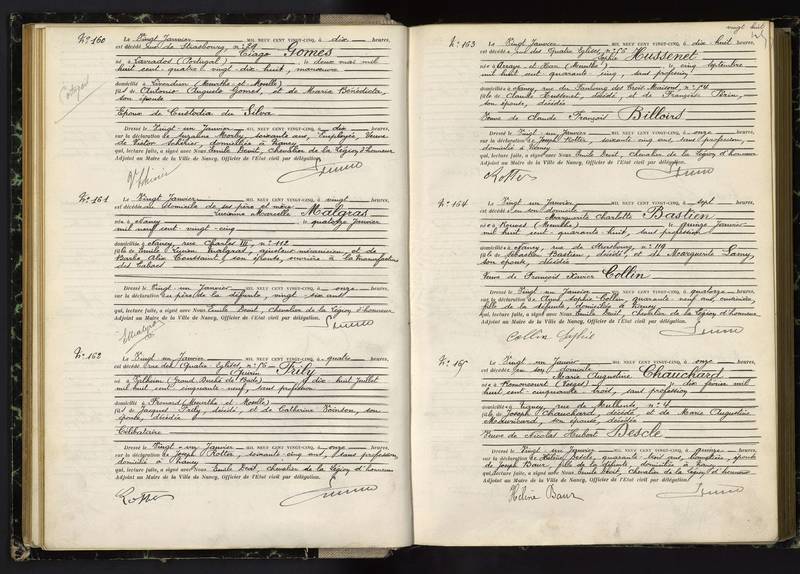 N° 160
Le Vingt Janvier MIL NEUF CENT VINGT-CINQ, à dix heures,
est décédé rue de Strasbourg, n° 79
Tiago Gomes
né à Cavrados (Portugal) le deux mai mil
huit cent quatre vingt dix huit, manœuvre
domicilié à Liverdun (Meurthe et Moselle)
fils de Antonio Augusto Gomes, et de Maria Bénédicta,
son épouse
Epoux de Custodia du Silva
Dressé le Vingt un Janvier MIL NEUF CENT VINGT-CINQ, à dix heures,
sur la déclaration de Suzanne Morel, soixante ans, employée, Veuve
de Victor Scherier, domiciliée à Nancy
qui, lecture faite, a signé avec Nous Emile Devit, Chevalier de la Légion d'honneur
Adjoint au Maire de la Ville de Nancy, Officier de l'Etat civil par délégation.
N° 161
Le Vingt Janvier MIL NEUF CENT VINGT-CINQ, à vingt heures,
est décédée au domicile de ses père et mère
Lucienne Marcelle Malgras
née à Nancy le quatorze Janvier
mil neuf cent vingt cinq
domiciliée à Nancy, rue Charles III, n° 112
fille de Emile Lucien Malgras, ajusteur mécanicien, et de
Barbe Alix Toussaint, son épouse, ouvrière à la manufacture
des tabacs
Dressé le Vingt un Janvier MIL NEUF CENT VINGT-CINQ, à onze heures,
sur la déclaration du père de la défunte, vingt six ans
qui, lecture faite, a signé avec Nous Emile Devit, Chevalier de la Légion d'honneur
Adjoint au Maire de la Ville de Nancy, Officier de l'Etat civil par délégation.
Malgras
N° 162
Le Vingt un Janvier MIL NEUF CENT VINGT-CINQ, à quatre heures,
est décédé rue des Quatre Eglises, n° 55
Quirin Frily
né à (Grand Duché de Bade) le dix huit Juillet
mil huit cent cinquante neuf, sans profession
domicilié à Frouard (Meurthe et Moselle)
fils de Jacques Frily, décédé, et de Catherine Boindon, son
épouse, décédée
Célibataire
Dressé le Vingt un Janvier MIL NEUF CENT VINGT-CINQ, à onze heures,
sur la déclaration de Joseph Rotter, soixante cinq ans, sans profession,
domicilié à Nancy
qui, lecture faite, a signé avec Nous Emile Devit, Chevalier de la Légion d'honneur
Adjoint au Maire de la Ville de Nancy, Officier de l'Etat civil par délégation.
Rotter
vingt huit
N° 163
Le Vingt Janvier MIL NEUF CENT VINGT-CINQ, à dix huit heures,
est décédée rue des Quatre Eglises, n° 55
Sophie Hussenet
née à Arraye et Han (Meurthe) le cinq Septembre
mil huit cent quarante cinq, sans profession
domiciliée à Nancy, rue du Faubourg des Trois Maisons, n° 74
fille de Claude Hussenet, décédé, et de Françoise Périn,
son épouse, décédée
Veuve de Claude François Billoirs
Dressé le Vingt un Janvier MIL NEUF CENT VINGT-CINQ, à onze heures,
sur la déclaration de Joseph Rotter, soixante cinq ans, sans profession,
domicilié à Nancy
qui, lecture faite, a signé avec Nous Emile Devit, Chevalier de la Légion d'honneur
Adjoint au Maire de la Ville de Nancy, Officier de l'Etat civil par délégation.
Rotter
N° 164
Le Vingt un Janvier MIL NEUF CENT VINGT-CINQ, à sept heures,
est décédée en son domicile
Marguerite Charlotte Bastien
née à Rouves (Meurthe) le quinze Janvier
mil huit cent quarante huit, sans profession
domiciliée à Nancy, rue de Strasbourg, n° 119
fille de Sébastien Bastien, décédé, et de Marguerite Lamy,
son épouse, décédée
Veuve de François Xavier Collin
Dressé le Vingt un Janvier MIL NEUF CENT VINGT-CINQ, à quatorze heures,
sur la déclaration de Sophie Collin, quarante neuf ans,
fille de la défunte, domiciliée à Nancy
qui, lecture faite, a signé avec Nous Emile Devit, Chevalier de la Légion d'honneur
Adjoint au Maire de la Ville de Nancy, Officier de l'Etat civil par délégation.
Collin Sophie
N° 165
Le Vingt un Janvier MIL NEUF CENT VINGT-CINQ, à onze heures,
est décédée en son domicile
Marie Augustine Chauchard
née à Removcourt (Vosges) le dix février mil
huit cent cinquante trois, sans profession
domiciliée à Nancy, rue de Mulhouse, n° 4
fille de Joseph Chauchard, décédé et de Marie Augustine
son épouse, décédée
Veuve de Nicolas Hubert Descle
Dressé le Vingt un Janvier MIL NEUF CENT VINGT-CINQ, à quinze heures,
sur la déclaration de Hélène Descle, quarante trois ans, épouse
de Joseph Baur, fille de la défunte, domiciliée à Nancy
qui, lecture faite, a signé avec Nous Emile Devit, Chevalier de la Légion d'honneur
Adjoint au Maire de la Ville de Nancy, Officier de l'Etat civil par délégation.
Hélène Baur